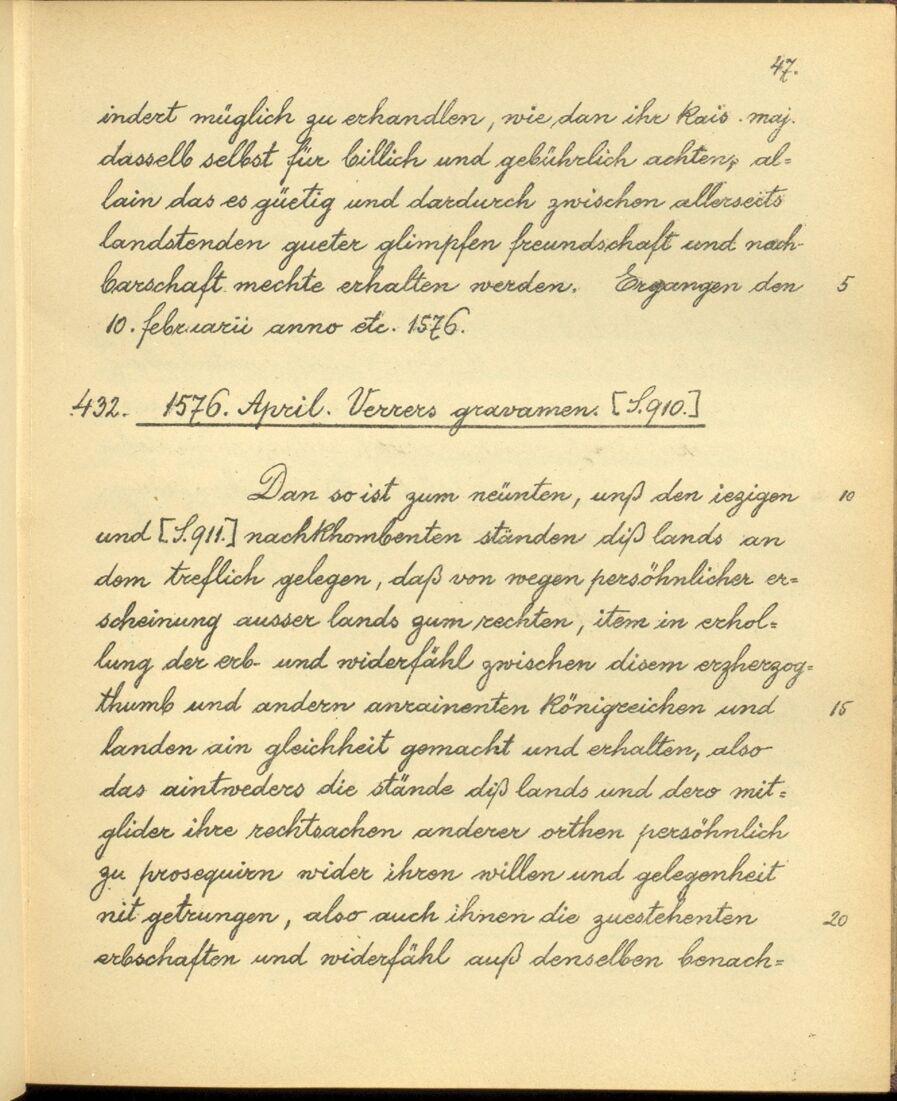 47.
indert müglich zu erhandlen, wie dan ihr kais. maj.
dasselb selbst für billich und gebührlich achten, al=
lain das es güetig und dardurch zwischen allerseits
landstenden gueter glimpfen freundschaft und nach-
barschaft mechte erhalten werden. Ergangen den 5
10. februarii anno etc. 1576.
432. 1576. April. Verrers gravamen. [S.910.]
Dan so ist zum neünten, unß den iezigen 10
und [S.911.] nachkhombenten ständen diß lands an
dem treflich gelegen, daß von wegen persöhnlicher er=
scheinung ausser lands zum rechten, item in erhol=
lung der erb- und widerfähl zwischen disem erzherzog=
thumb und andern anrainenten königreichen und 15
landen ain gleichheit gemacht und erhalten, also
das aintweders die stände diß lands und dero mit=
glider ihre rechtsachen anderer orthen persöhnlich
zu prosequirn wider ihren willen und gelegenheit
nit getrungen, also auch ihnen die zuestehenten 20
erbschaften und widerfähl auß denselben benach=